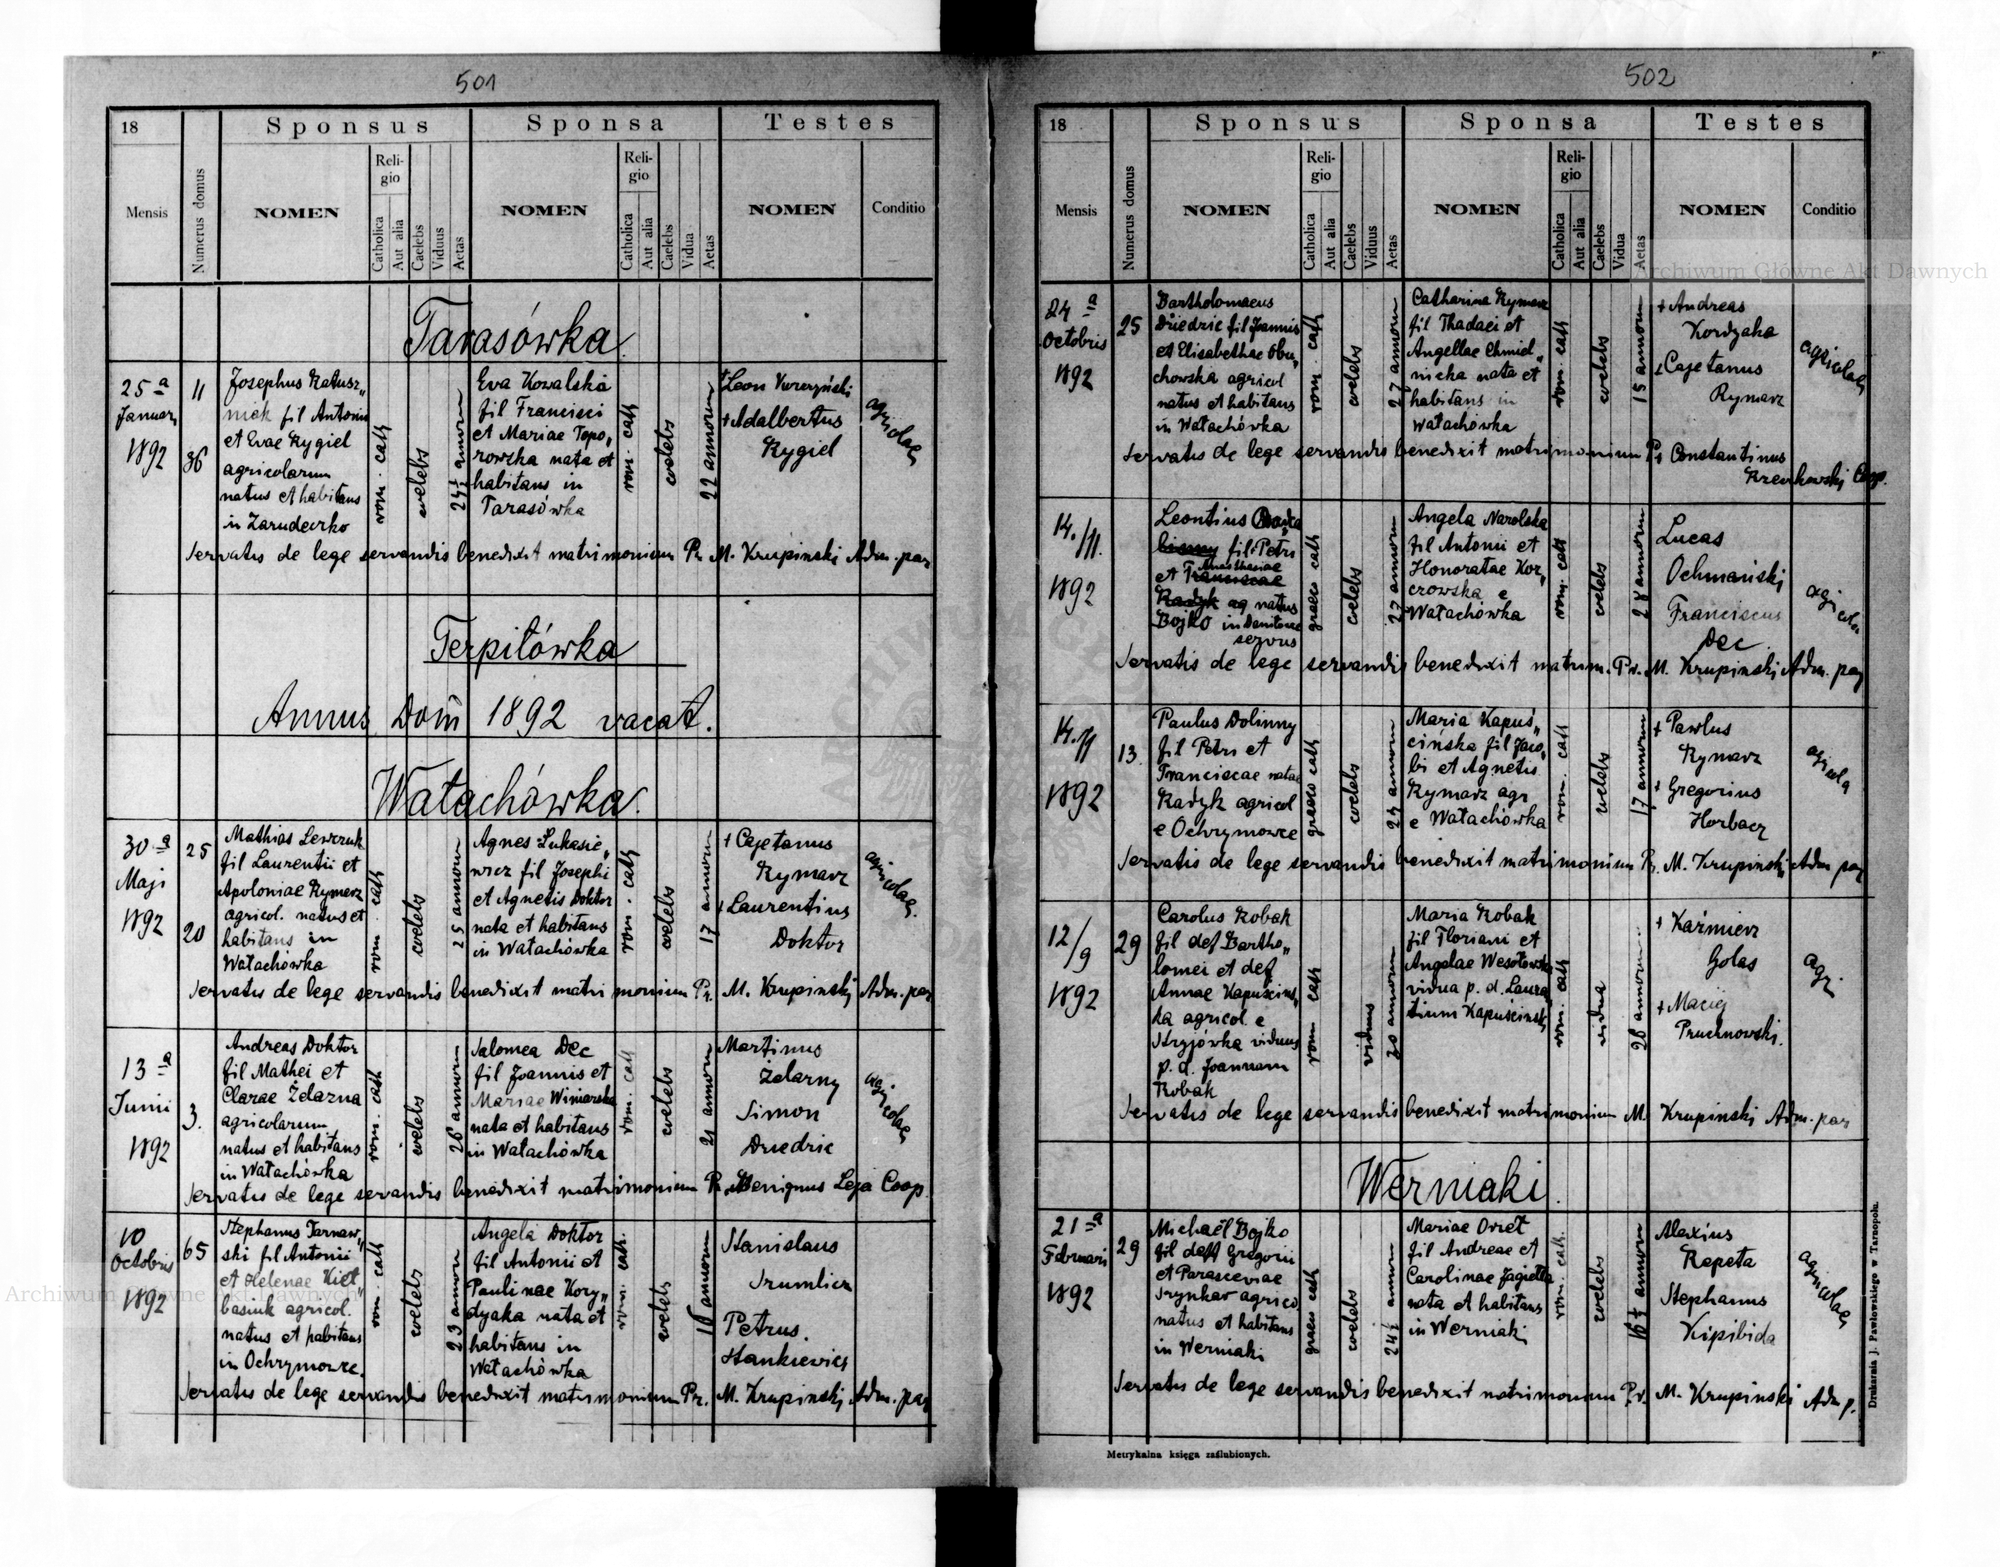 501
18
Sponsus
Sponsa
Testes
Mensis
Numerus domus
NOMEN
Religio
Catholica
Aut alia
Caelebs
Viduus
Aetas
NOMEN
Religio
Catholica
Aut alia
Caelebs
Vidua
Aetas
NOMEN
Conditio
Tarasówka
25 a
Januarii
1892
11
36
Josephus
fil Antonii
et Evae Rygiel
agricolarum
natus et habitans
in Zarudeczko
rom. cath
coelebs
24½ annorum
Eva Kowalska
fil Francisci
et Mariae Topo„
rowska nata et
habitans in
Tarasówka
rom. cath
coelebs
22 annorum
Leon
+ Adalbertus
Rygiel
agricolae
Servatis de lege servandis benedixit matrimonium Pr. M. Krupinski Adm. par
Terpiłówka
Annus Domi 1892 vacat.
Wałachówka.
30 a
Maji
1892
25
20
Mathias Lewczuk
fil Laurentii et
Apoloniae Rymarz
agricol. natus et
habitans in
Wałachówka
rom. cath
coelebs
25 annorum
Agnes Łukasie„
wicz fil Josephi
et Agnetis Doktor
nata et habitans
in Wałachówka
rom. cath
coelebs
17 annorum
+ Cajetanus
Rymarz
+ Laurentius
Doktor
agricolae
Servatis de lege servandis benedixit matrimonium Pr. M. Krupinski Adm. par
13 a
Junii
1892
3.
Andreas Doktor
fil Mathei et
Clarae Żelazna
agricolarum
natus et habitans
in Wałachówka
rom. cath
coelebs
26 annorum
Salomea Dec
fil Joannis et
Mariae Winiarska
nata et habitans
in Wałachówka
rom. cath
coelebs
21 annorum
Martinus
Żelazny
Simon
Dziedzic
agricolae
Servatis de lege servandis benedixit matrimonium Pr. Benignus Leja Coop.
10
Octobris
1892
65
Stephanus Tarnaw„
ski fil Antonii
et Helenae Kieł„
basiuk agricol.
natus et habitans
in Ochrymowce.
rom. cath
coelebs
23 annor
Angela Doktor
fil Antonii et
Paulinae Kory„
dyaka nata et
habitans in
Wałachówka
rom. cath.
coelebs
16 annorum
Stanislaus
Petrus.
Stankiewicz
Servatis de lege servandis benedixit matrimonium Pr. M. Krupinski Adm. par
502
18
Sponsus
Sponsa
Testes
Mensis
Numerus domus
NOMEN
Religio
Catholica
Aut alia
Caelebs
Viduus
Aetas
NOMEN
Religio
Catholica
Aut alia
Caelebs
Vidua
Aetas
NOMEN
Conditio
24 a
Octobris
1892
25
Bartholomaeus
Dziedzic fil Joannis
et Elisabethae Obu„
chowska agricol
natus et habitans
in Wałachówka
rom. cath
coelebs
27 annorum
Catharina Rymarz
fil Thadaei et
Angellae Chmiel„
nicka nata et
habitans in
Wałachówka
rom. cath
coelebs
15 annorum
+ Andreas
+ Cajetanus
Rymarz
agricolae
Servatis de lege servandis benedixit matrimonium Pr Constantinus
Coop.
14./11.
1892
Leontius
fil. Petri
et Anasthasiae
Franciscae
Radyk ag natus
Bojko in
servus
graeco cath
coelebs
27 annorum
Angela Narolska
fil Antonii et
Honoratae Kor„
czowska e
Wałachówka
rom. cath
coelebs
28 annorum
Lucas
Ochmański
Franciscus
Dec
agricolae
Servatis de lege servandis benedixit matrim. Pr. M. Krupinski Adm. par
14./11
1892
13.
Paulus Dolinny
fil Petri et
Franciscae natae
Radyk agricol
e Ochrymowce
graeco cath
coelebs
24 annorum
Maria Kapuś„
cińska fil Jaco„
bi et Agnetis
Rymarz agr
e Wałachówka
rom. cath
coelebs
17 annorum
+ Pawlus
Rymarz
+ Gregorius
Horbacz
agricola
Servatis de lege servandis benedixit matrimonium Pr. M. Krupinski Adm par
12/9
1892
29
Carolus Robak
fil def Bartho„
lomei et def
Annae Kapuścińs„
ka agricol. e
Stryjówka viduus
p. d. Joannam
Robak
rom cath
viduus
30 annorum
Maria Robak
fil Floriani et
Angelae Wesołowska
vidua p. d. Lauren
tium Kapuściński
rom. cath
vidua
28 annorum
+ Kaźmierz
Golas
+ Maciej
Pruchnowski.
agr.
Servatis de lege servandis benedixit matrimonium M. Krupinski Adm. par
Werniaki.
21 a
Februarii
1892
29
Michaël Bojko
fil deft Gregorii
et Parasceviae
agrico
natus et habitans
in Werniaki
graeco cath
coelebs
24½ annor
Mariae Orzeł
fil Andreae et
Carolinae Jagiełła
nata et habitans
in Werniaki
rom. cath.
coelebs
16½ annorum
Alexius
Rapeta
Stephanus
Kipibida
agricolae
Servatis de lege servandis benedixit matrimonium Pr. M. Krupinski Adm p.
Metrykalna księga zaślubionych.
Drukarnia J. Pawłowskiego w Tarnopolu.
Archiwum Główne Akt Dawnych
Archiwum Główne Akt Dawnych